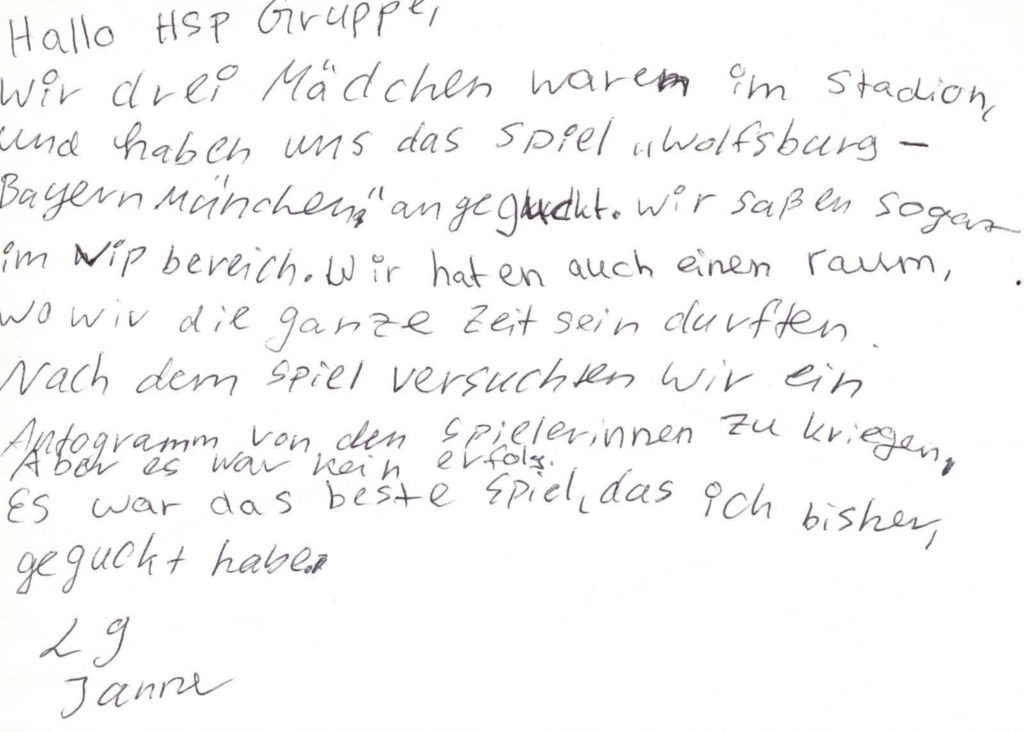 Hallo HSP Gruppe,
Wir drei Mädchen waren im Stadion,
und haben uns das Spiel „Wolfsburg –
Bayern München," angeguckt. Wir saßen sogar
im Vip bereich. Wir haten auch einen raum,
wo wir die ganze Zeit sein durften.
Nach dem Spiel versuchten wir ein
Autogramm von den Spielerinnen zu kriegen,
Aber es war kein erfolg.
Es war das beste Spiel, das ich bisher,
geguckt habe.
LG
Janne